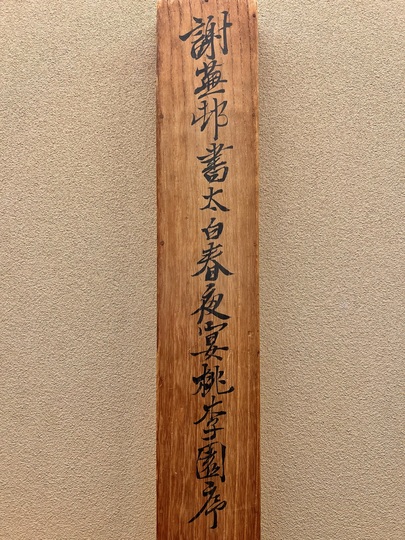 謝蕪邨書太白春夜宴桃李園序